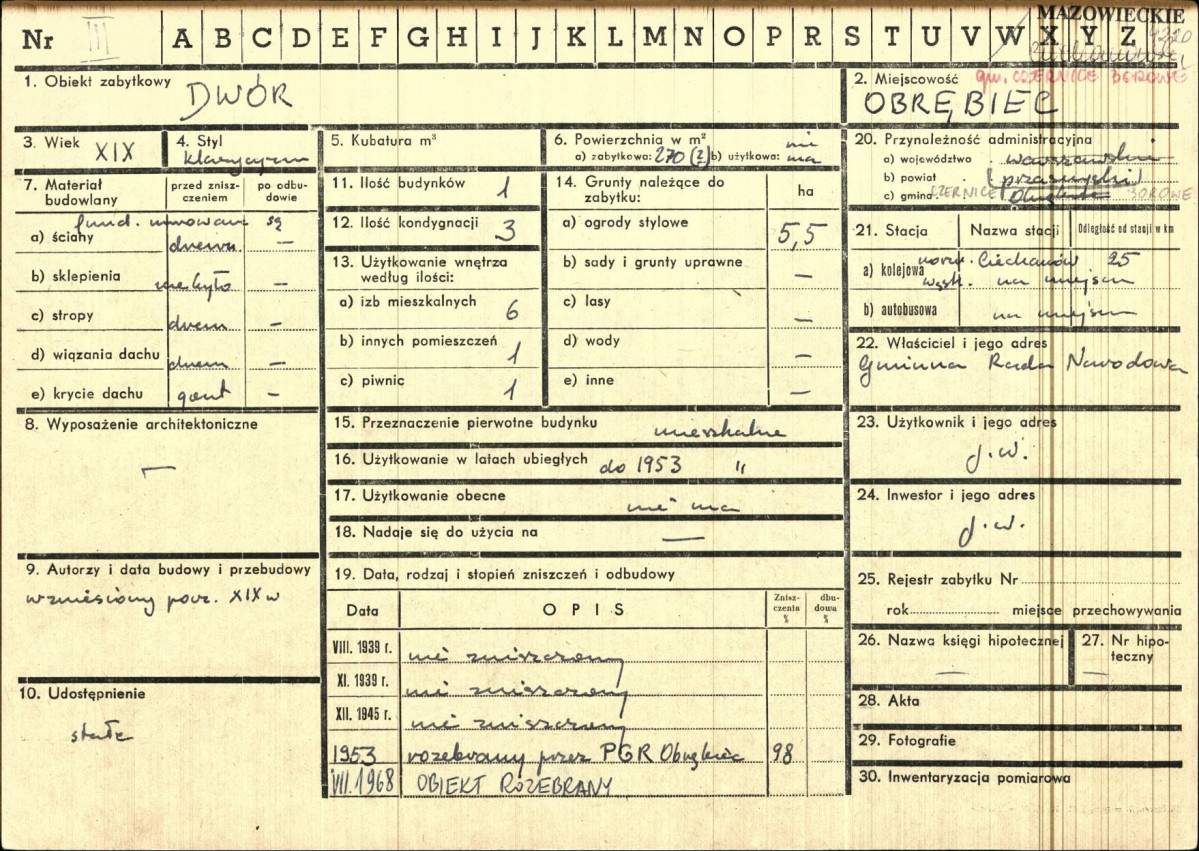 MAZOWIECKIE
Nr III A B C D E F G H I J K L M N O P R S T U V W X Y Z
1. Obiekt zabytkowy DWÓR
2. Miejscowość gm. CZERNICE BOROWE
OBRĘBIEC
3. Wiek XIX
4. Styl klasycyzm
5. Kubatura m³
6. Powierzchnia w m²
a) zabytkowa: 270 (?) b) użytkowa: nie ma
7. Materiał budowlany
przed zniszczeniem
po odbudowie
fund. murowane są
a) ściany drewn. —
b) sklepienia nie było —
c) stropy drewn —
d) wiązania dachu drewn —
e) krycie dachu gont —
8. Wyposażenie architektoniczne
—
9. Autorzy i data budowy i przebudowy
wzniesiony pocz. XIX w
10. Udostępnienie
stałe
11. Ilość budynków 1
12. Ilość kondygnacji 3
13. Użytkowanie wnętrza według ilości:
a) izb mieszkalnych 6
b) innych pomieszczeń 1
c) piwnic 1
14. Grunty należące do zabytku: ha
a) ogrody stylowe 5,5
b) sady i grunty uprawne —
c) lasy —
d) wody —
e) inne —
15. Przeznaczenie pierwotne budynku mieszkalne
16. Użytkowanie w latach ubiegłych do 1953 "
17. Użytkowanie obecne nie ma
18. Nadaje się do użycia na —
19. Data, rodzaj i stopień zniszczeń i odbudowy
Data OPIS Zniszczenia % dbudowa %
VIII. 1939 r. nie zniszczony
XI. 1939 r. nie zniszczony
XII. 1945 r. nie zniszczony
1953 rozebrany przez PGR Obrębiec 98
VIII.1968 OBIEKT ROZEBRANY
20. Przynależność administracyjna
a) województwo warszawskie
b) powiat (przasnyski)
c) gmina CZERNICE BOROWE
21. Stacja Nazwa stacji Odległość od stacji w km
a) kolejowa norm. Ciechanów 25
wąsk. na miejscu
b) autobusowa na miejscu
22. Właściciel i jego adres
Gminna Rada Narodowa
23. Użytkownik i jego adres
j.w.
24. Inwestor i jego adres
j.w.
25. Rejestr zabytku Nr
rok miejsce przechowywania
26. Nazwa księgi hipotecznej
—
27. Nr hipoteczny
—
28. Akta
29. Fotografie
30. Inwentaryzacja pomiarowa